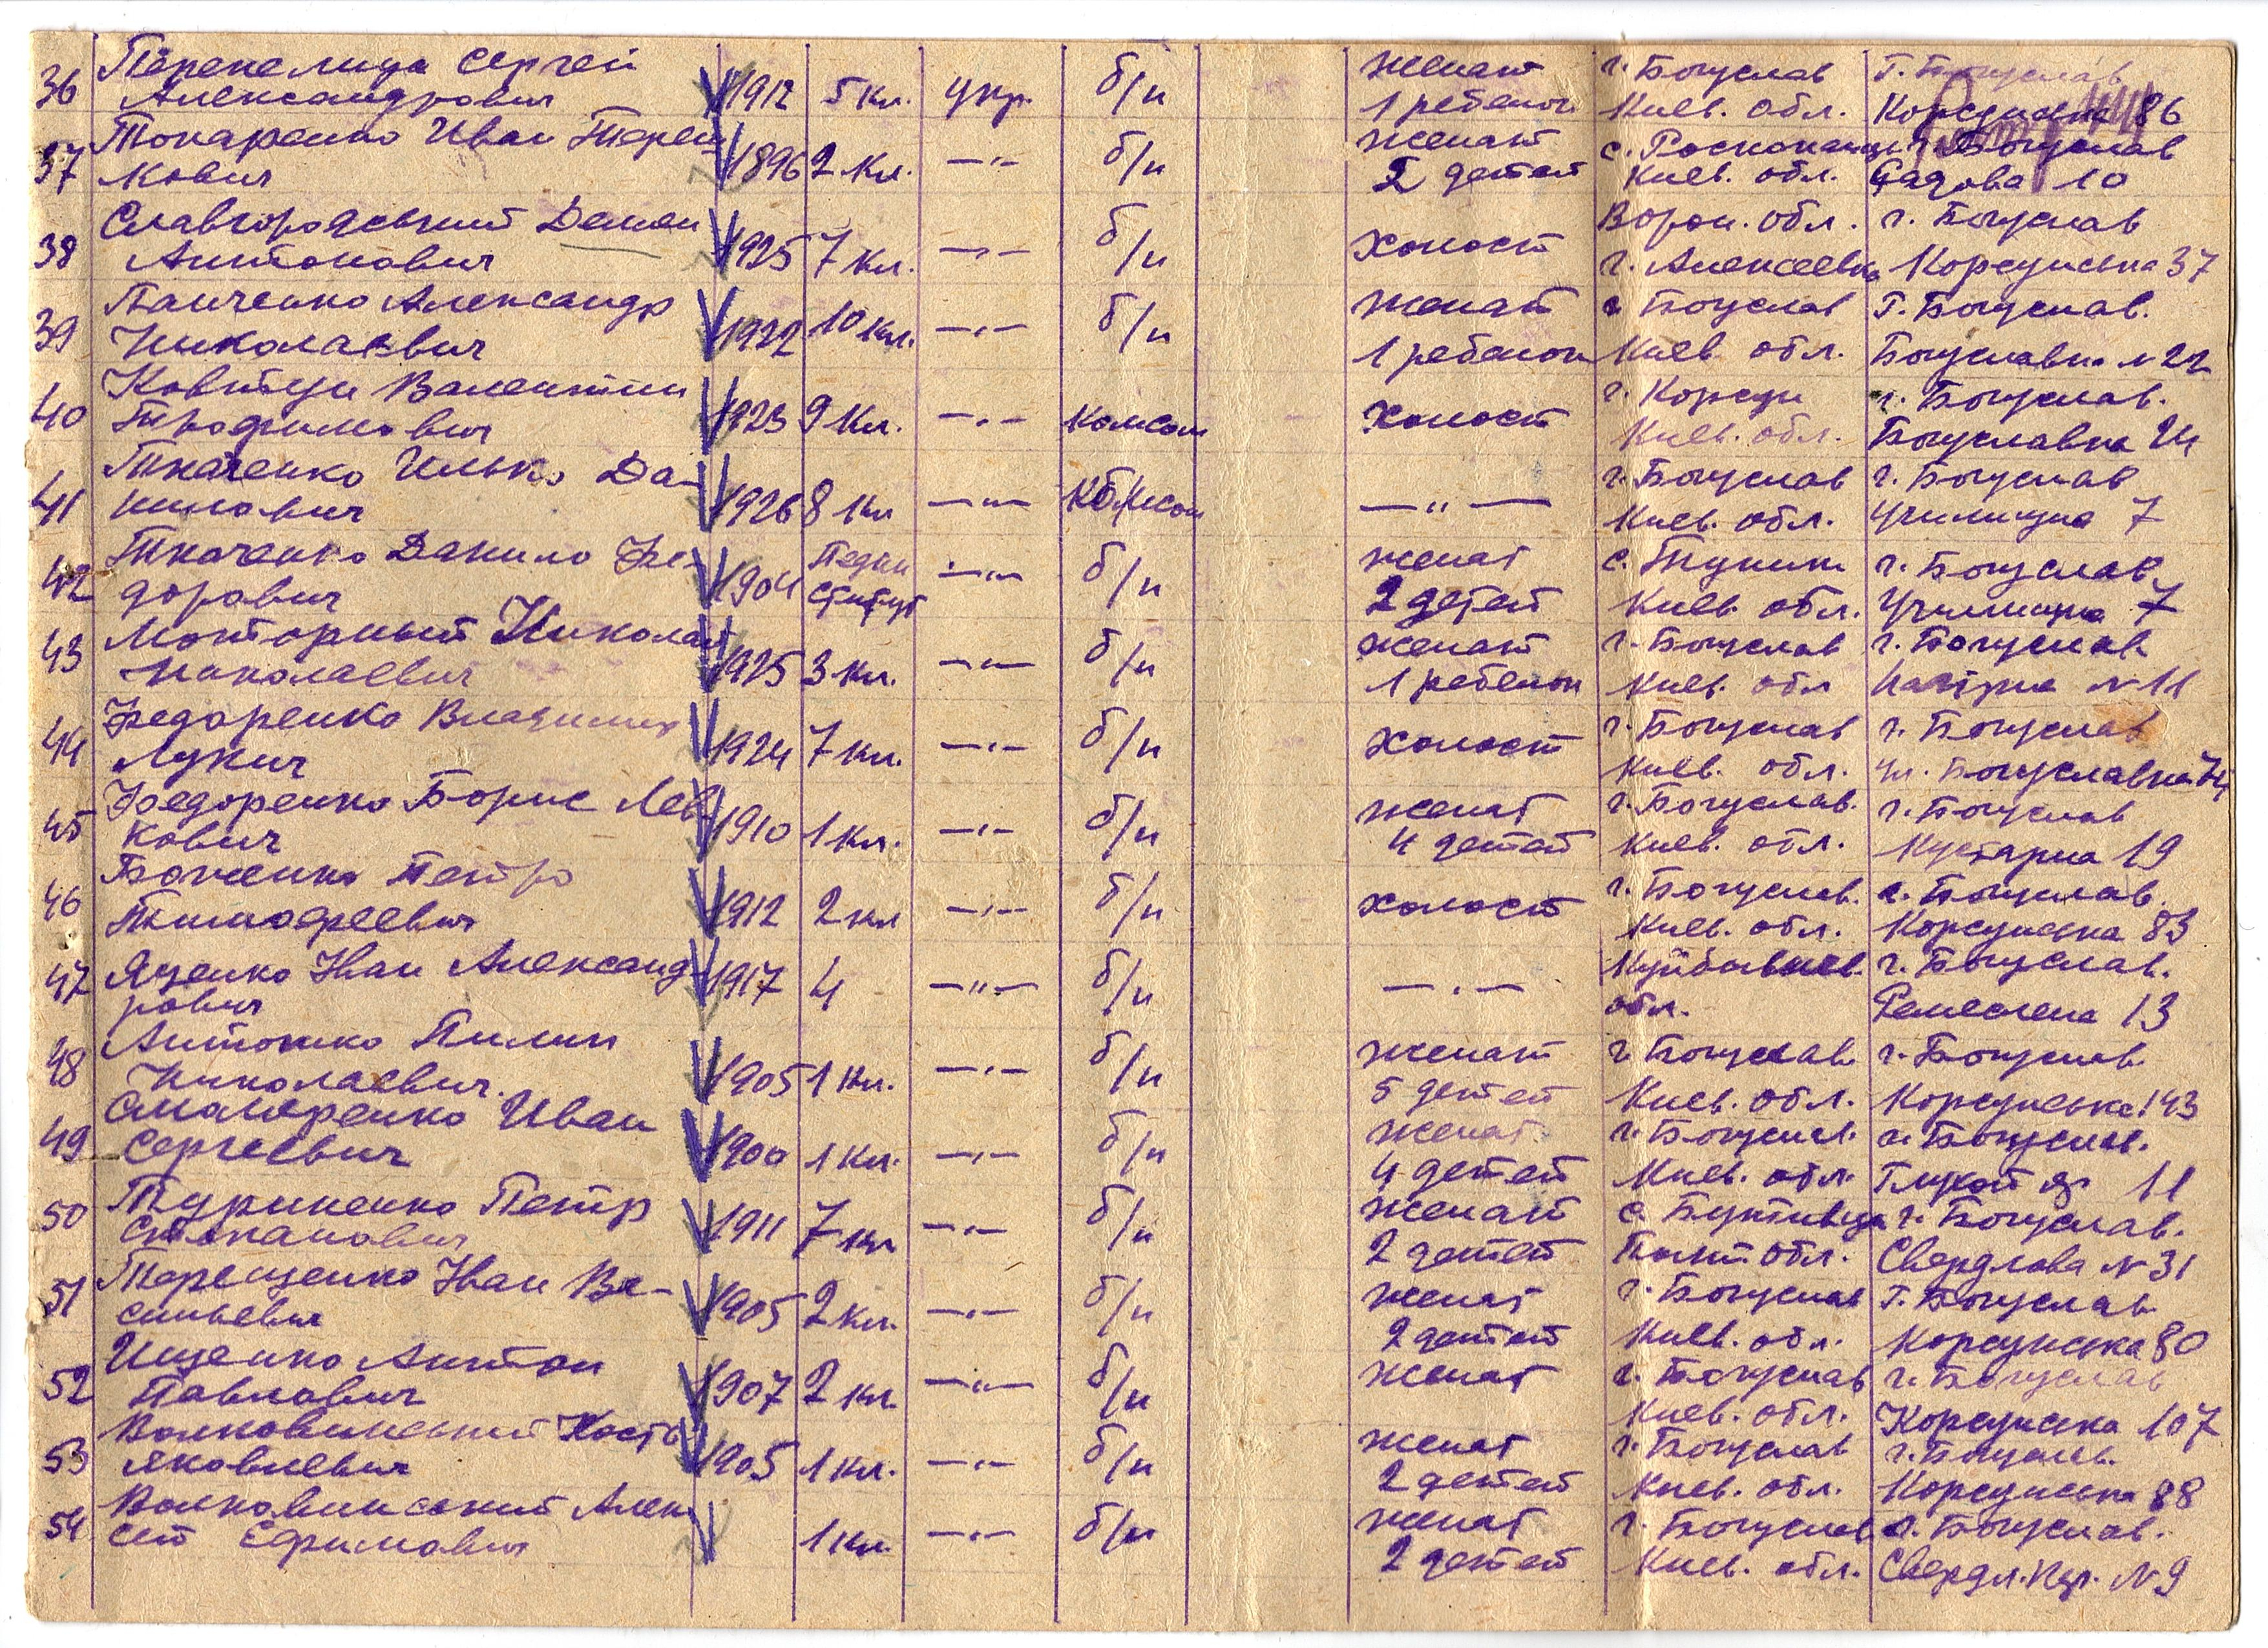 36 Перепелица Сергей Александрович 1912 5 кл. укр. б/п женат 1 ребенок г. Богуслав Киев. обл. Г. Богуслав Корсунска 86
37 Токаренко Иван Терен кович 1896 2 кл. —"— б/п женат 2 детей с. Киев. обл. г. Богуслав Садова 10
38 Славгородський Демян Антонович 1925 7 кл. —"— б/п холост Ворон. обл. г. Алексеевка г. Богуслав Корсунська 37
39 Панченко Александр Николаевич 1922 10 кл. —"— б/п женат 1 ребенок г Богуслав Киев обл. Г. Богуслав. Богуславка № 22
40 Ковтун Валентин Трофимович 1923 9 кл. —"— комсом холост г. Корсун Киев. обл. г. Богуслав. Богуславка
41 Ткаченко Илько Да- нилович 1926 8 кл —"— комсом —"— г. Богуслав Киев. обл. г. Богуслав Училищна 7
42 Ткаченко Данило Фе- дорович 1904 Педин ститут —"— б/п женат 2 детей с. Киев обл. г. Богуслав. Училищна 7
43 Моторный Николай Николаевич 1925 3 кл. —"— б/п женат 1 ребенок г. Богуслав Киев. обл г. Богуслав № 11
44 Федоренко Владимир Лукич 1924 7 кл. —"— б/п холост г. Богуслав Киев. обл. г. Богуслав ул. Богуславка 74
45 Федоренко Борис Лев- кович 1910 1 кл. —"— б/п женат 4 детей г. Богуслав. Киев. обл. г. Богуслав Кустарна 19
46 Петро Тимофеевич 1912 2 кл —"— б/п холост г. Богуслав. Киев. обл. г. Богуслав. Корсунська 83
47 Яценко Иван Александ- рович 1917 4 —"— б/п —"— Куйбышев. обл. г. Богуслав. Ремеслена 13
48 Антошко Пилип Николаевич. 1905 1 кл. —"— б/п женат 5 детей г Богуслав Киев. обл. г. Богуслав. Корсунська 143
49 Иван Сергеевич 1900 1 кл. —"— б/п женат. 4 детей г. Богуслав. Киев. обл. г. Богуслав. 11
50 Туриненко Петр Степанович 1911 7 кл —"— б/п женат 2 детей с. Полт обл. г. Богуслав. Свердлова № 31
51 Терещенко Иван Ва- сильевич 1905 2 кл. —"— б/п женат 2 детей г. Богуслав Киев. обл. Г. Богуслав. Корсунська 80
52 Ищенко Антон Павлович 1907 2 кл. —"— б/п женат г. Богуслав Киев. обл. г. Богуслав Корсунска 107
53 Волковинський Кость Яковлевич 1905 1 кл. —"— б/п женат 2 детей г. Богуслав Киев. обл. г. Богуслав. Корсунська 88
54 Волковинский Алек сей Ефимович 1 кл. —"— б/п женат 2 детей г. Богуслав Киев. обл. г. Богуслав. Свердл. № 9